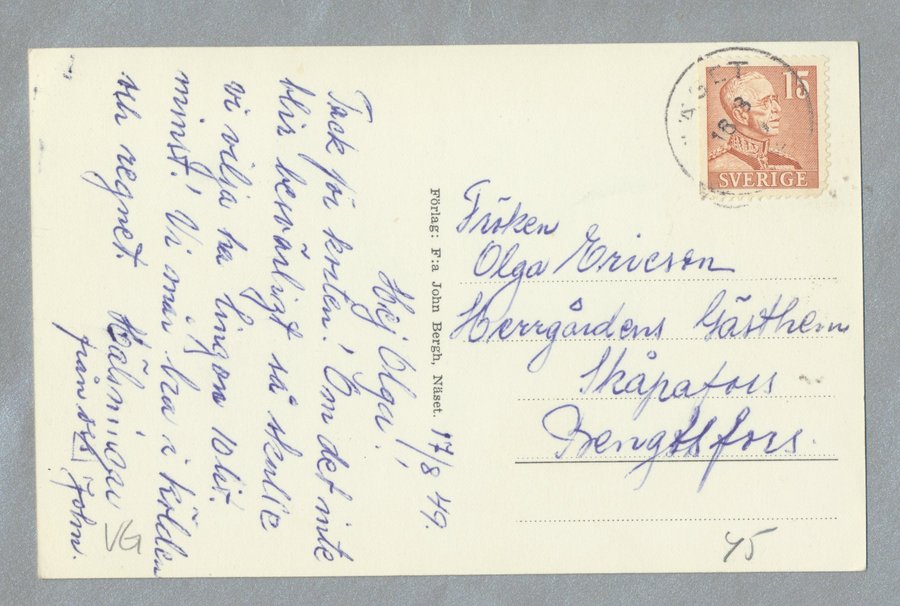 Hej Olga! 17/8 49.
Tack för korten! Om det inte
blir besvärligt så skulle
vi vilja ha lingon 10 lit.
minst! Vi mår bra i kölden
och regnet. Hälsningar
från oss John.
VG
Förlag: F:a John Bergh, Näset.
15
SVERIGE
18 8
Fröken
Olga Ericson
Herrgårdens Gästhem
Skåpafors
Bengtsfors.
45